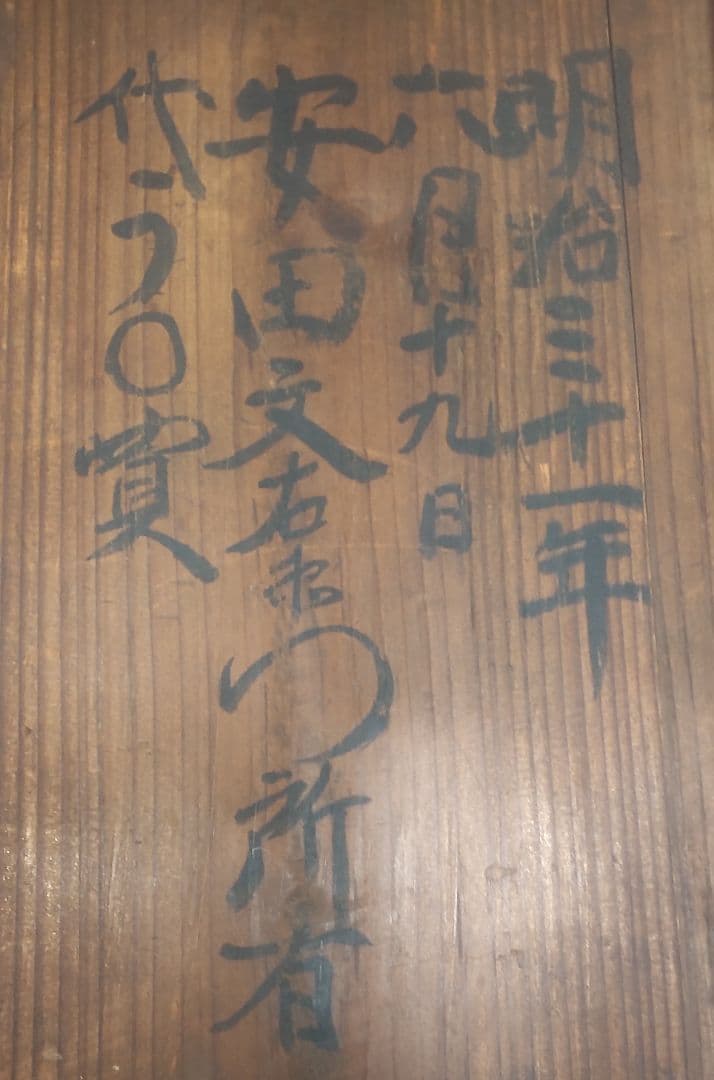 明治三十一年
六月十九日
安田文右衛門所有
代ラ〇買